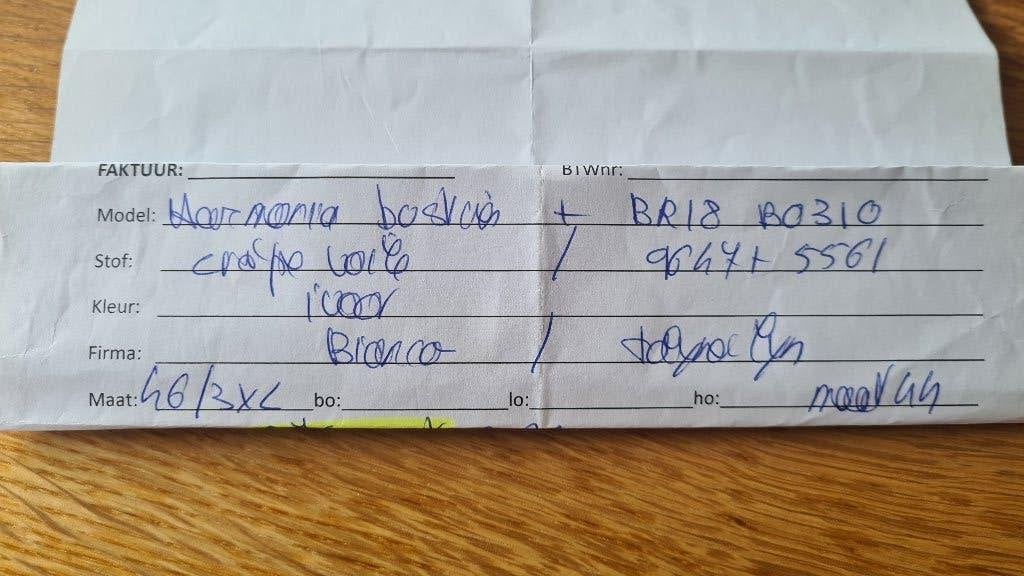 FAKTUUR: BTWnr:
Model: Harmonia + BR18 B0310
Stof: crêpe / 9647+ 5561
Kleur: ivoor
Firma: Bianco /
Maat: 46/3XL bo: lo: ho: maat 44